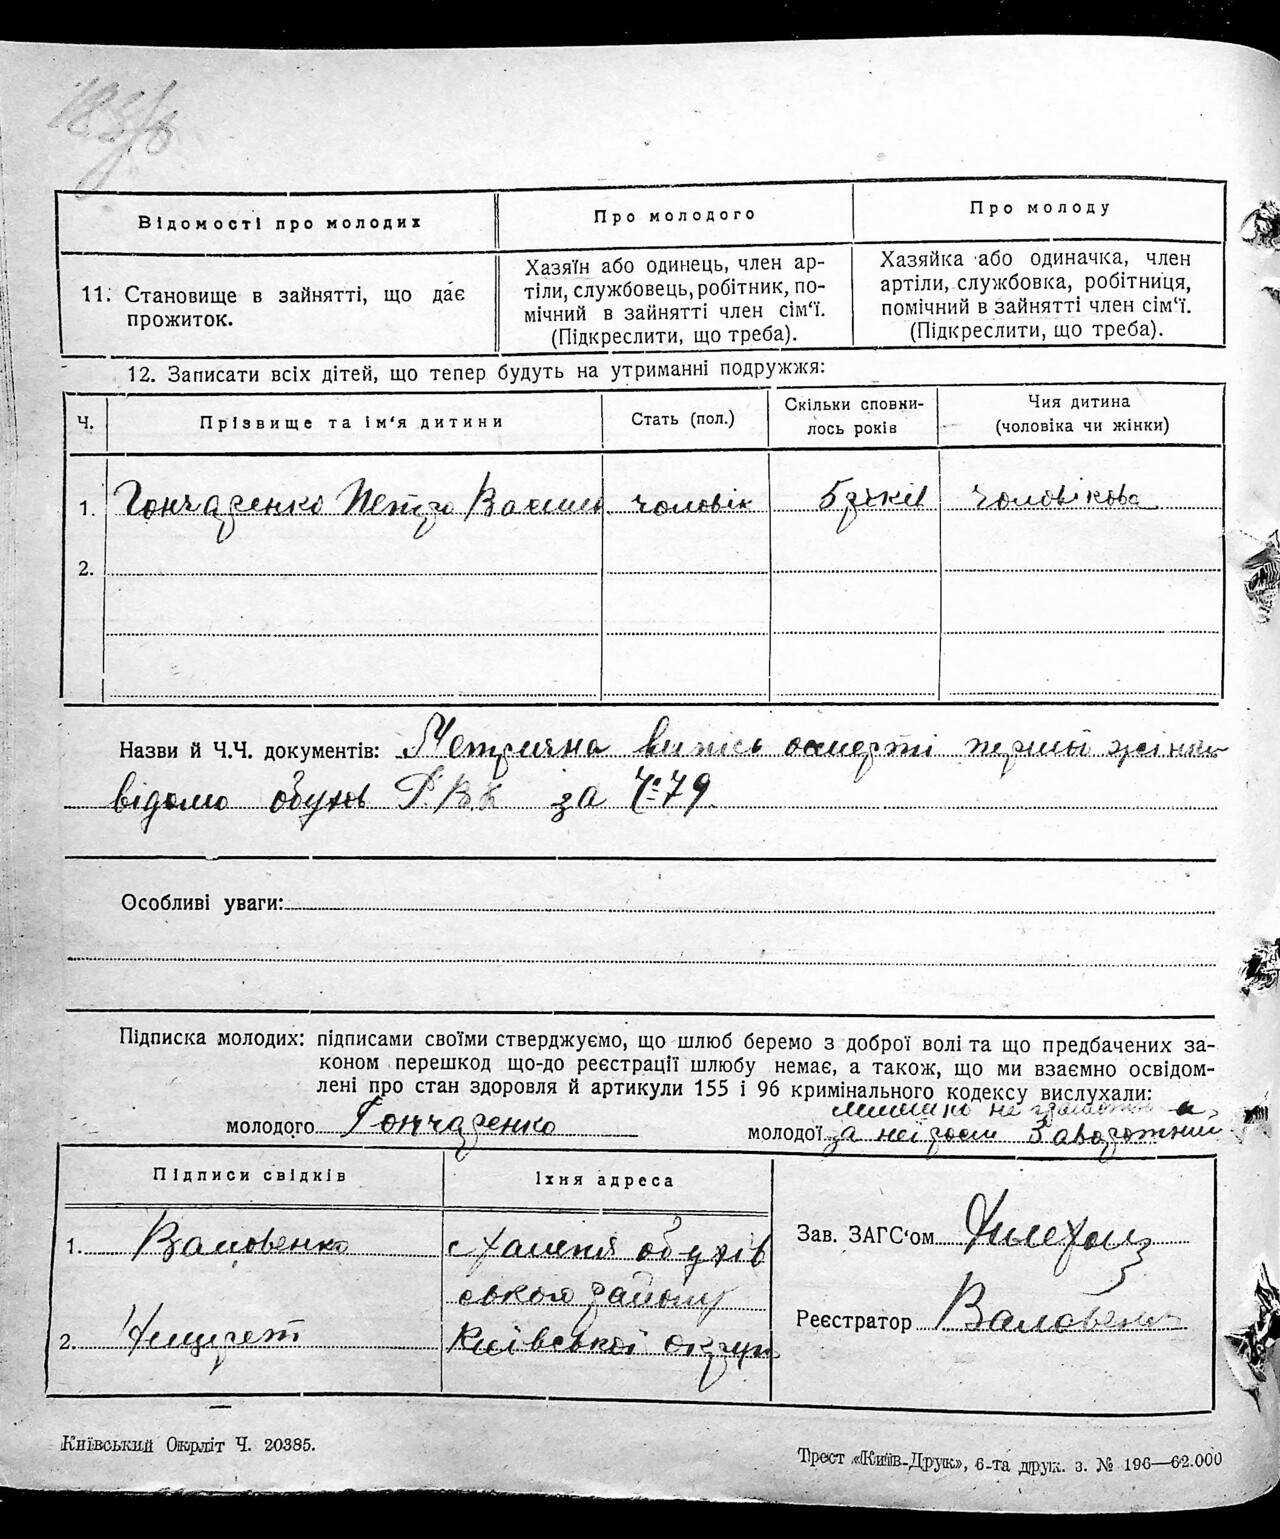 Відомості про молодих
Про молодого
Про молоду
11. Становище в зайнятті, що дає
прожиток.
Хазяїн або одинець, член ар-
тіли, службовець, робітник, по-
мічний в зайнятті член сім'ї.
(Підкреслити, що треба).
Хазяйка або одиначка, член
артіли, службовка, робітниця,
помічний в зайнятті член сім'ї.
(Підкреслити, що треба).
12. Записати всіх дітей, що тепер будуть на утриманні подружжя:
Ч.
Прізвище та ім'я дитини
Стать (пол.)
Скільки сповни-
лось років
Чия дитина
(чоловіка чи жінки)
1. Гончаренко Петро чоловік 5 років чоловікова
2.
Назви й Ч.Ч. документів: Метрична випись о смерті першої жінки
відомо обухов Р.В.К за Ч: 79
Особливі уваги:
Підписка молодих: підписами своїми стверджуємо, що шлюб беремо з доброї волі та що предбачених за-
коном перешкод що-до реєстрації шлюбу немає, а також, що ми взаємно освідом-
лені про стан здоровля й артикули 155 і 96 кримінального кодексу вислухали:
молодого Гончаренко
молодої за неї
Підписи свідків
Їхня адреса
1. Валовенко
с Халепя обухів
ського району
2.
Київської округи
Зав. ЗАГС'ом
Реєстратор Валовенко
Київський Окрліт Ч. 20385.
Трест «Київ-Друк», 6-та друк. з. № 196—62.000